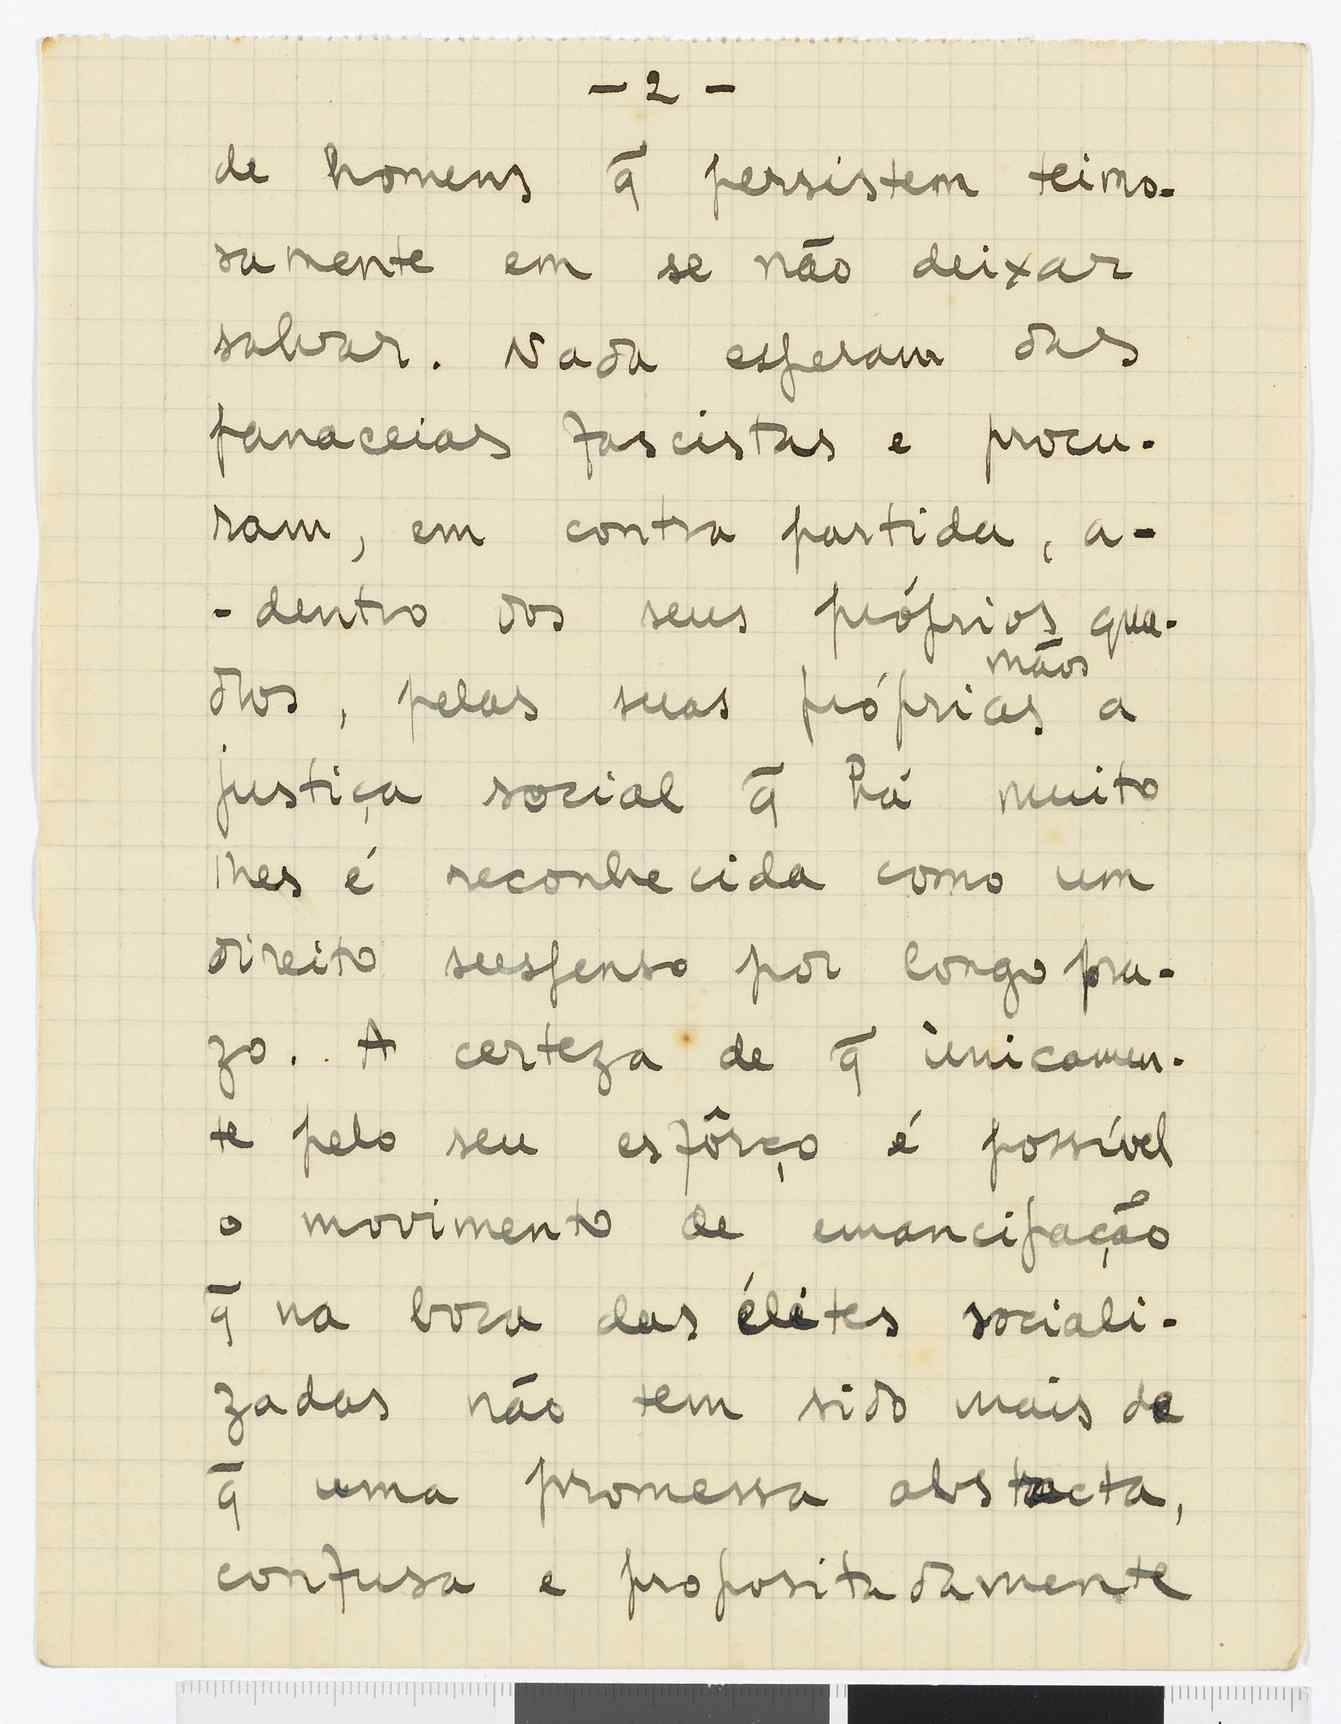 - 2 -
de homens q̄ persistem teimo-
samente em se não deixar
salvar. Nada esperam das
panaceias fascistas e procu-
ram, em contra partida, a-
-dentro dos seus próprios qua-
mãos
dros, pelas suas próprias a
justiça social q̄ há muito
lhes é reconhecida como um
direito suspenso por longo pra-
zo. A certeza de q̄ ùnicamen-
te pelo seu esfôrço é possível
o movimento de emancipação
q̄ na boca das élites sociali-
zadas não tem sido mais de
q̄ uma promessa abstracta,
confusa e propositadamente